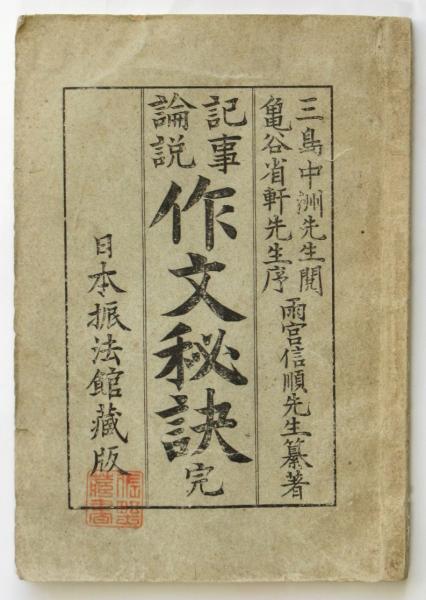 三島中洲先生閱
亀谷省軒先生序
雨宮信順先生纂著
記事
論説
作文秘訣完
日本振法館藏版